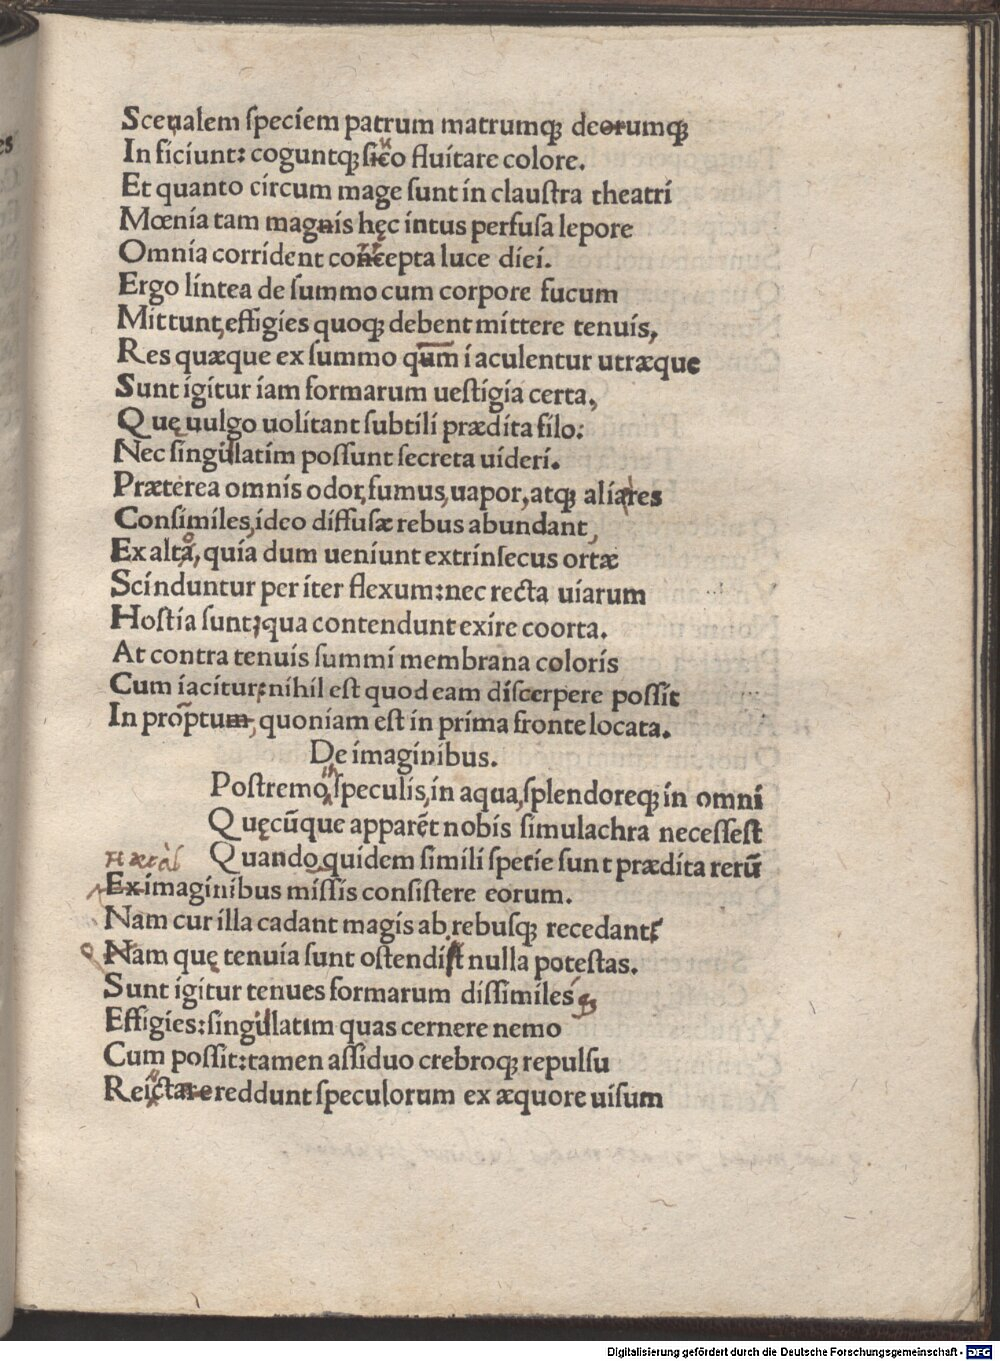 Sceualem ſpeciem patrum matrumqꝫ deorumqꝫ
In ficiunt: coguntqꝫ ſico fluitare colore.
Et quanto circum mage ſunt in clauſtra theatri
Mœnia tam magnis hęc intus perfuſa lepore
Omnia corrident concepta luce diei.
Ergo lintea de ſummo cum corpore fucum
Mittunt, effigies quoqꝫ debent mittere tenuis,
Res quæque ex ſummo qum iaculentur utræque
Sunt igitur iam formarum ueſtigia certa,
Quę uulgo uolitant ſubtili prædita filo:
Nec ſingulatim poſſunt ſecreta uideri.
Præterea omnis odor, fumus, uapor, atqꝫ aliares
Conſimiles, ideo diffuſæ rebus abundant,
Ex alta, quia dum ueniunt extrinſecus ortæ
Scinduntur per iter flexum: nec recta uiarum
Hoſtia ſunt; qua contendunt exire coorta.
At contra tenuis ſummi membrana coloris
Cum iacitur: nihil eſt quod eam diſcerpere poſſit
In promptum, quoniam eſt in prima fronte locata.
De imaginibus.
Poſtremo, ſpeculis, in aqua, ſplendoreqꝫ in omni
Quęcũque apparẽt nobis ſimulachra neceſſeſt
Quando quidem ſimili ſpetie ſunt prædita rerũ
Ex imaginibus miſſis conſiſtere eorum.
Nam cur illa cadant magis ab rebuſqꝫ recedant
Nam quę tenuia ſunt oſtendiſt nulla poteſtas.
Sunt igitur tenues formarum diſſimiles qꝫ
Effigies: ſingulatim quas cernere nemo
Cum poſſit: tamen aſſiduo crebroqꝫ repulſu
Reictare reddunt ſpeculorum ex æquore uiſum
Digitalisierung gefördert durch die Deutsche Forschungsgemeinschaft - DFG